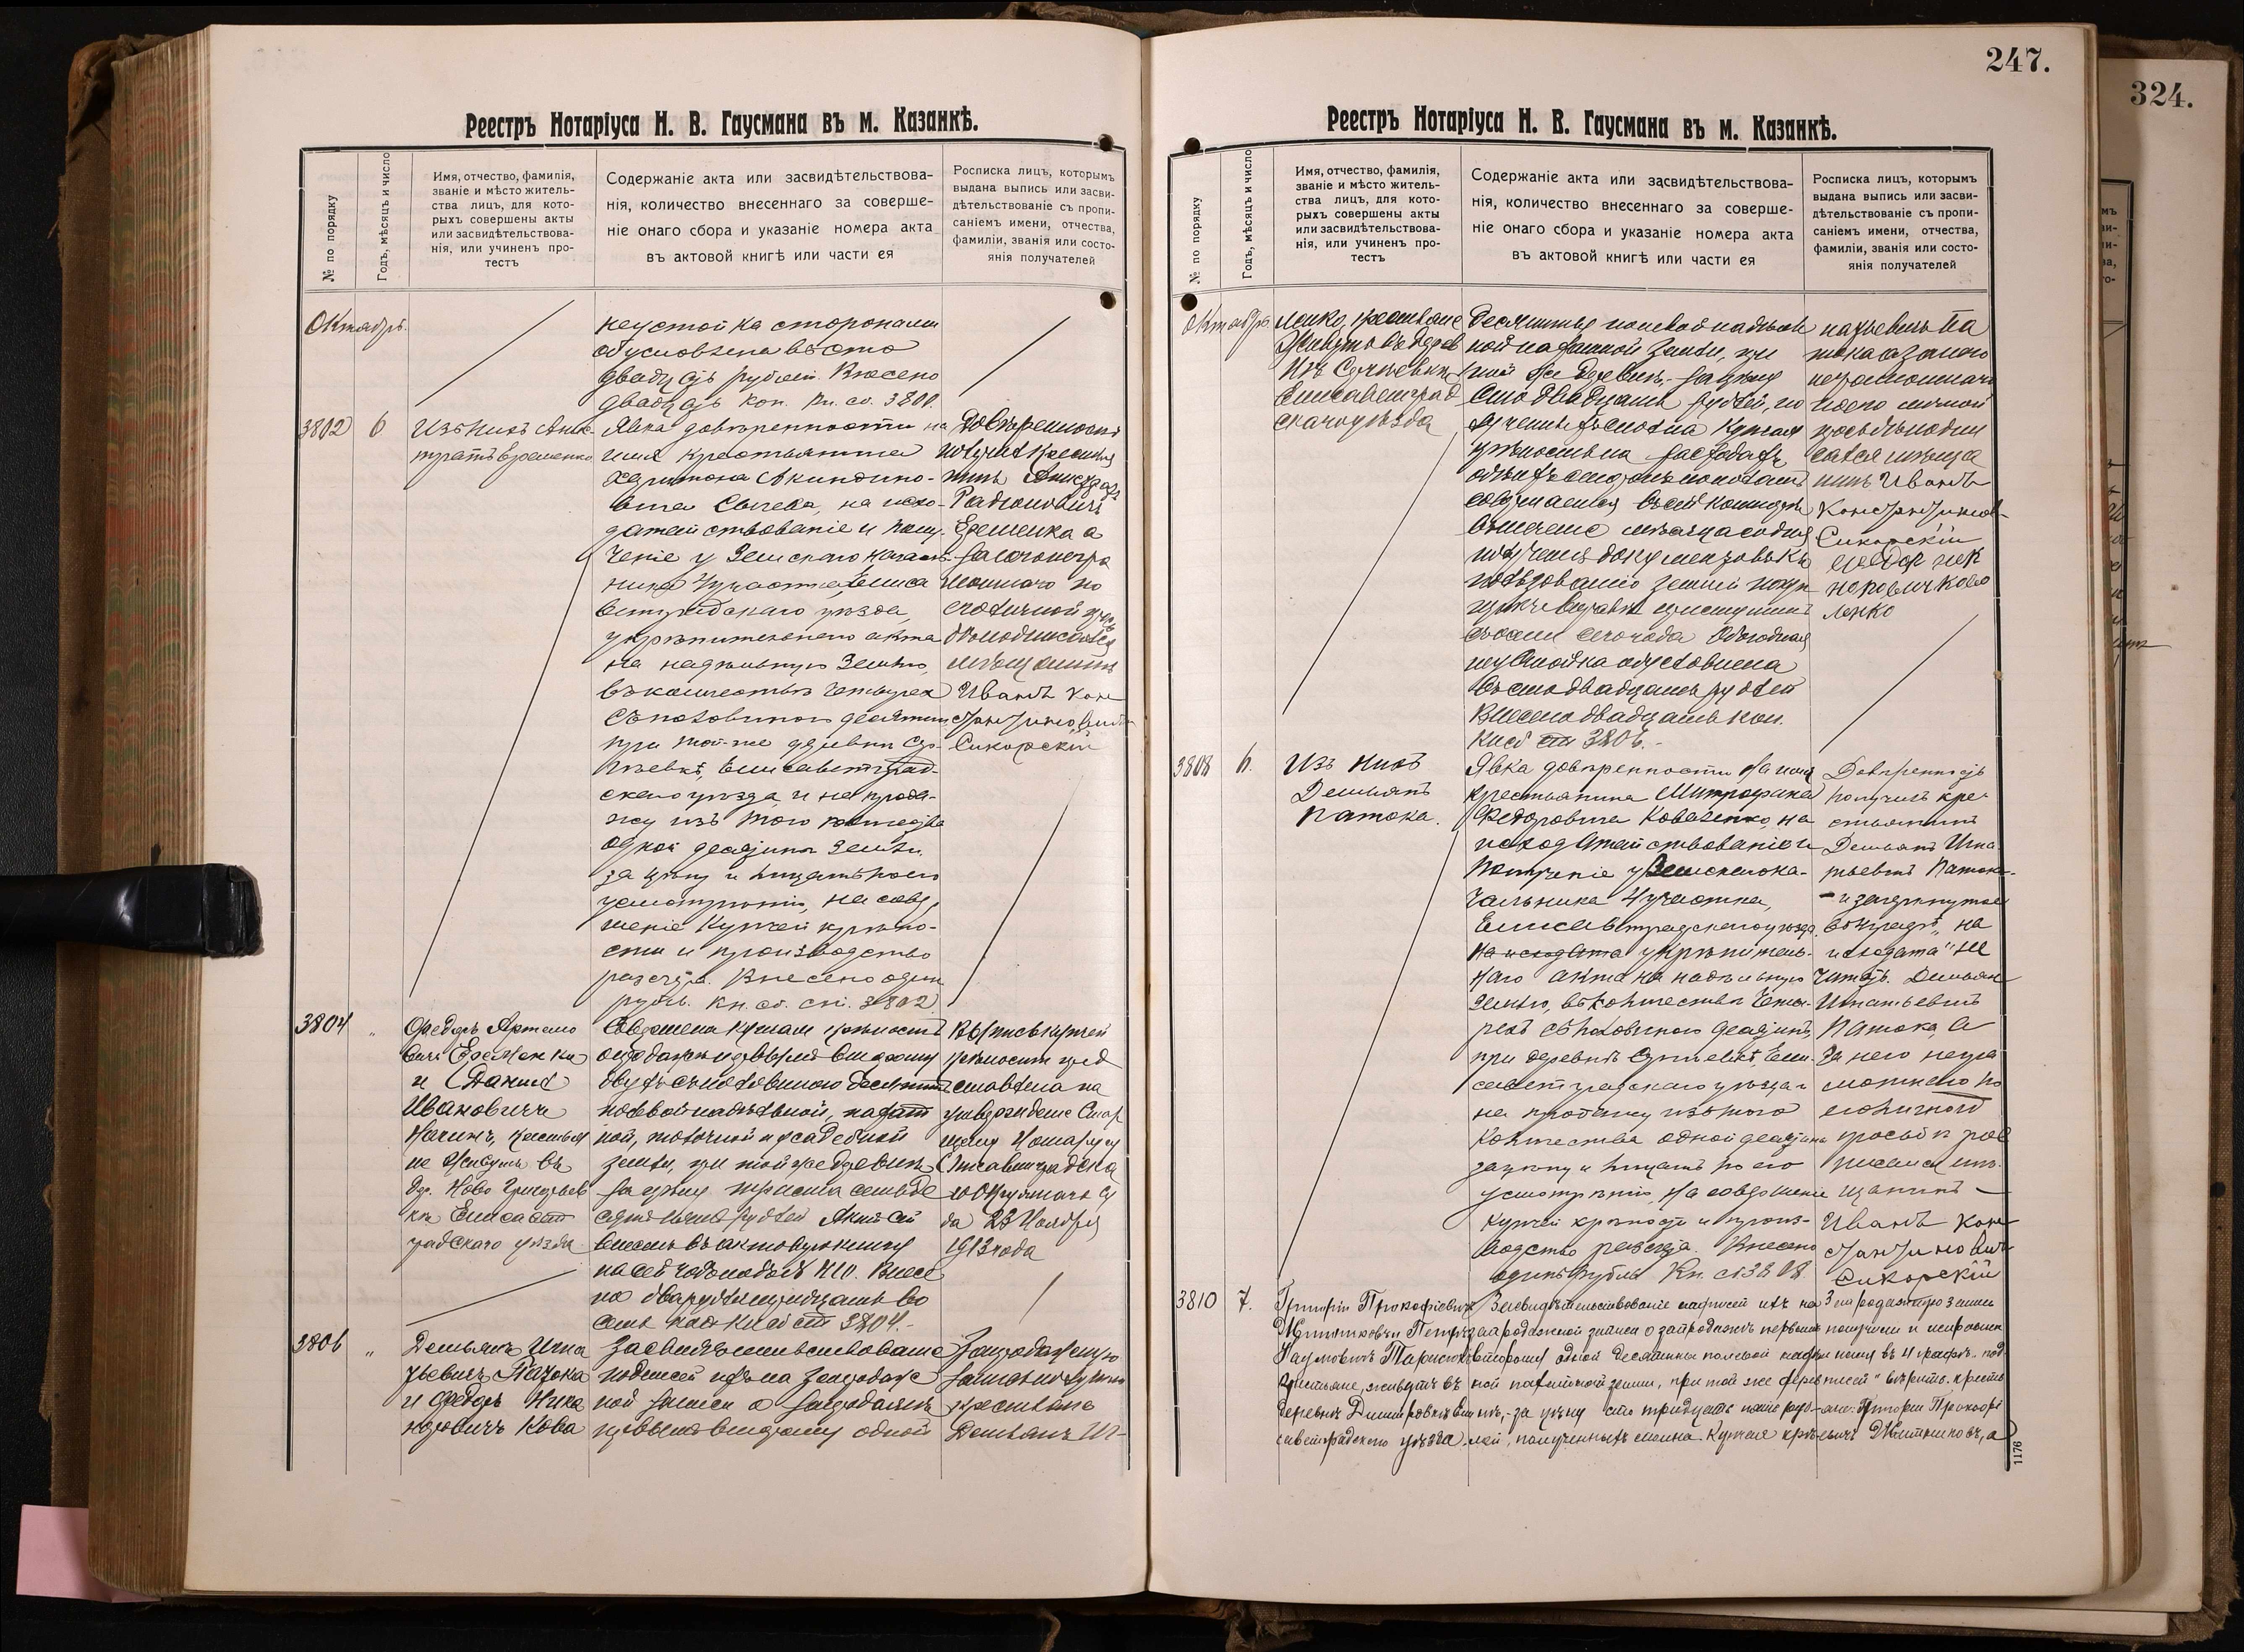 Реестръ Нотаріуса Н. В. Гаусмана въ м. Казанкѣ.
№ по порядку
Годъ, мѣсяцъ и число
Имя, отчество, фамилія,
званіе и мѣсто житель-
ства лицъ, для кото-
рыхъ совершены акты
или засвидѣтельствова-
нія, или учиненъ про-
тестъ
Содержаніе акта или засвидѣтельствова-
нія, количество внесеннаго за соверше-
ніе онаго сбора и указаніе номера акта
въ актовой книгѣ или части ея
Росписка лицъ, которымъ
выдана выпись или засви-
дѣтельствованіе съ пропи-
саніемъ имени, отчества,
фамиліи, званія или состо-
янія получателей
Октябрь.
неустойка сторонами
обусловлена въ сто
двадцать рублей. Внесено
двадцать коп. Кн. сб. 3800.
3802
6
Изъ нихъ
Явка довѣренности на
имя крестьянина
Харитона Акиндино-
вича Сычева, на исхо-
датайствованіе и полу-
ченіе у Земскаго Началь-
ника участка, Елиса
ветградскаго уѣзда,
укрѣпительнаго акта
на надѣльную землю,
въ количествѣ четырех
съ половиною десятин
при той-же деревни
Елисаветград-
скаго уѣзда, и на прода-
жу изъ того количества
одной десятины земли,
за цѣну и лицамъ по его
усмотрѣнію, на совер-
шеніе купчей крѣпо-
сти и производство
разсчета. Внесено один
рубль. Кн. сб. ст. 3802.
Довѣренность
получилъ крестья
нинъ
Радіоновичъ
Еременко а
за него негра
мотнаго по
его личной прось
бѣ подписался
мѣщанинъ
Иванъ Кон
стантиновичъ
Сикорскій
3804
"
Федоръ Артемо
вичъ Еременко
и Данилъ
Ивановичъ
крестья
не живутъ въ
др. Ново Григорьев
кѣ Елисавет
градскаго уѣзда
Совершена купчая крѣпость
о продажѣ первымъ второму
двухъ съ половиною десятин
полевой надѣльной, пахат
ной, толочной и усадебной
земли, при той же деревнѣ
за цѣну триста семьде
сятъ пять рублей Актъ сей
внесенъ въ актовую книгу
на сей годъ подъ № 410. Внесе
но два рубля тридцать во
семь коп. Кн. сб. ст. 3804.-
Выпись купчей
крѣпости пред
ставлена на
утвержденіе Стар
шему Нотаріусу
Елисаветградска
го Окружнаго Су
да 23 Ноября
1913 года
3806
"
Демьянъ Игна
тьевичъ Патока
и Федоръ Ника
норовичъ Кова
Засвидѣтельствованіе
подписей ихъ на запродаж
ной записи о запродажѣ
первымъ второму одной
Запродажную
запись получили
крестьяне
Демьянъ Иг-
247.
Реестръ Нотаріуса Н. В. Гаусмана въ м. Казанкѣ.
№ по порядку
Годъ, мѣсяцъ и число
Имя, отчество, фамилія,
званіе и мѣсто житель-
ства лицъ, для кото-
рыхъ совершены акты
или засвидѣтельствова-
нія, или учиненъ про-
тестъ
Содержаніе акта или засвидѣтельствова-
нія, количество внесеннаго за соверше-
ніе онаго сбора и указаніе номера акта
въ актовой книгѣ или части ея
Росписка лицъ, которымъ
выдана выпись или засви-
дѣтельствованіе съ пропи-
саніемъ имени, отчества,
фамиліи, званія или состо-
янія получателей
Октябрь.
ленко, крестьяне
живутъ въ дерев
нѣ
Елисаветград
скаго уѣзда
десятины полевой надѣль
ной пахатной земли, при
той же деревнѣ, за цѣну
сто двадцать рублей, по
лученныхъ сполна Купчая
крѣпость на расходахъ
обѣихъ сторонъ пополам
совершается въ м. Казанкѣ
въ теченіе мѣсяца со дня
полученія документовъ Къ
пользованію землей поку
щикъ вправѣ приступить
съ сего года Обоюдная
неустойка обусловлена
въ сто двадцать рублей
Внесено двадцать коп.
Кн. сб. ст. 3806.-
натьевичъ Па
тока а за него
неграмотнаго
по его личной
просьбѣ подпи
сался мѣща
нинъ Иванъ
Константинов
Сикорскій
Федор Ник
норович Кова
ленко
3808
6.
Изъ нихъ
Демьянъ
Патока.
Явка довѣренности на имя
крестьянина Митрофана
Федоровича Коваленко, на
исходатайствованіе и
полученіе у Земскаго на-
чальника 4 участка,
Елисаветградскаго уѣзда,
на исходата укрѣпитель-
наго акта на надѣльную
землю, въ количествѣ четы-
рехъ съ половиною десятинъ,
при деревнѣ Ели-
саветградскаго уѣзда и
на продажу изъ того
количества одной десятины
за цѣну и лицамъ по его
усмотрѣнію, на совершеніе
купчей крѣпости и произ-
водство разсчета. Внесено
одинъ рубль Кн. сб. 3808.
Довѣренность
получилъ кре-
стьянинъ
Демьянъ Игна
тьевичъ Патока-
- и зачеркнутое
въ 4 графѣ "на
исходата" не
читать. Демьян
Игнатьевичъ
Патока, а
за него негра
мотнаго по
его личной
просьбѣ рос
писался мѣ-
щанинъ -
Иванъ Кон
стантинович
Сикорскій
3810
7.
Григорій Прокофіевичъ
Житниковъ и Петръ
Наумовичъ
крестьяне, живутъ въ
деревнѣ Ели
саветградскаго уѣзда
Засвидѣтельствованіе подписей ихъ на
запродажной записи о запродажѣ первымъ
второму одной десятины полевой надѣль
ной пахатной земли, при той же дерев
нѣ, - за цѣну сто тридцать пять руб-
лей, полученныхъ сполна. Купчая крѣ-
Запродажную запись
получили и исправлен
ныя въ 4 графѣ - под
писей" вѣрить. кресть
яне: Григорій Прокофі
евичъ Житниковъ, а
1176
324.